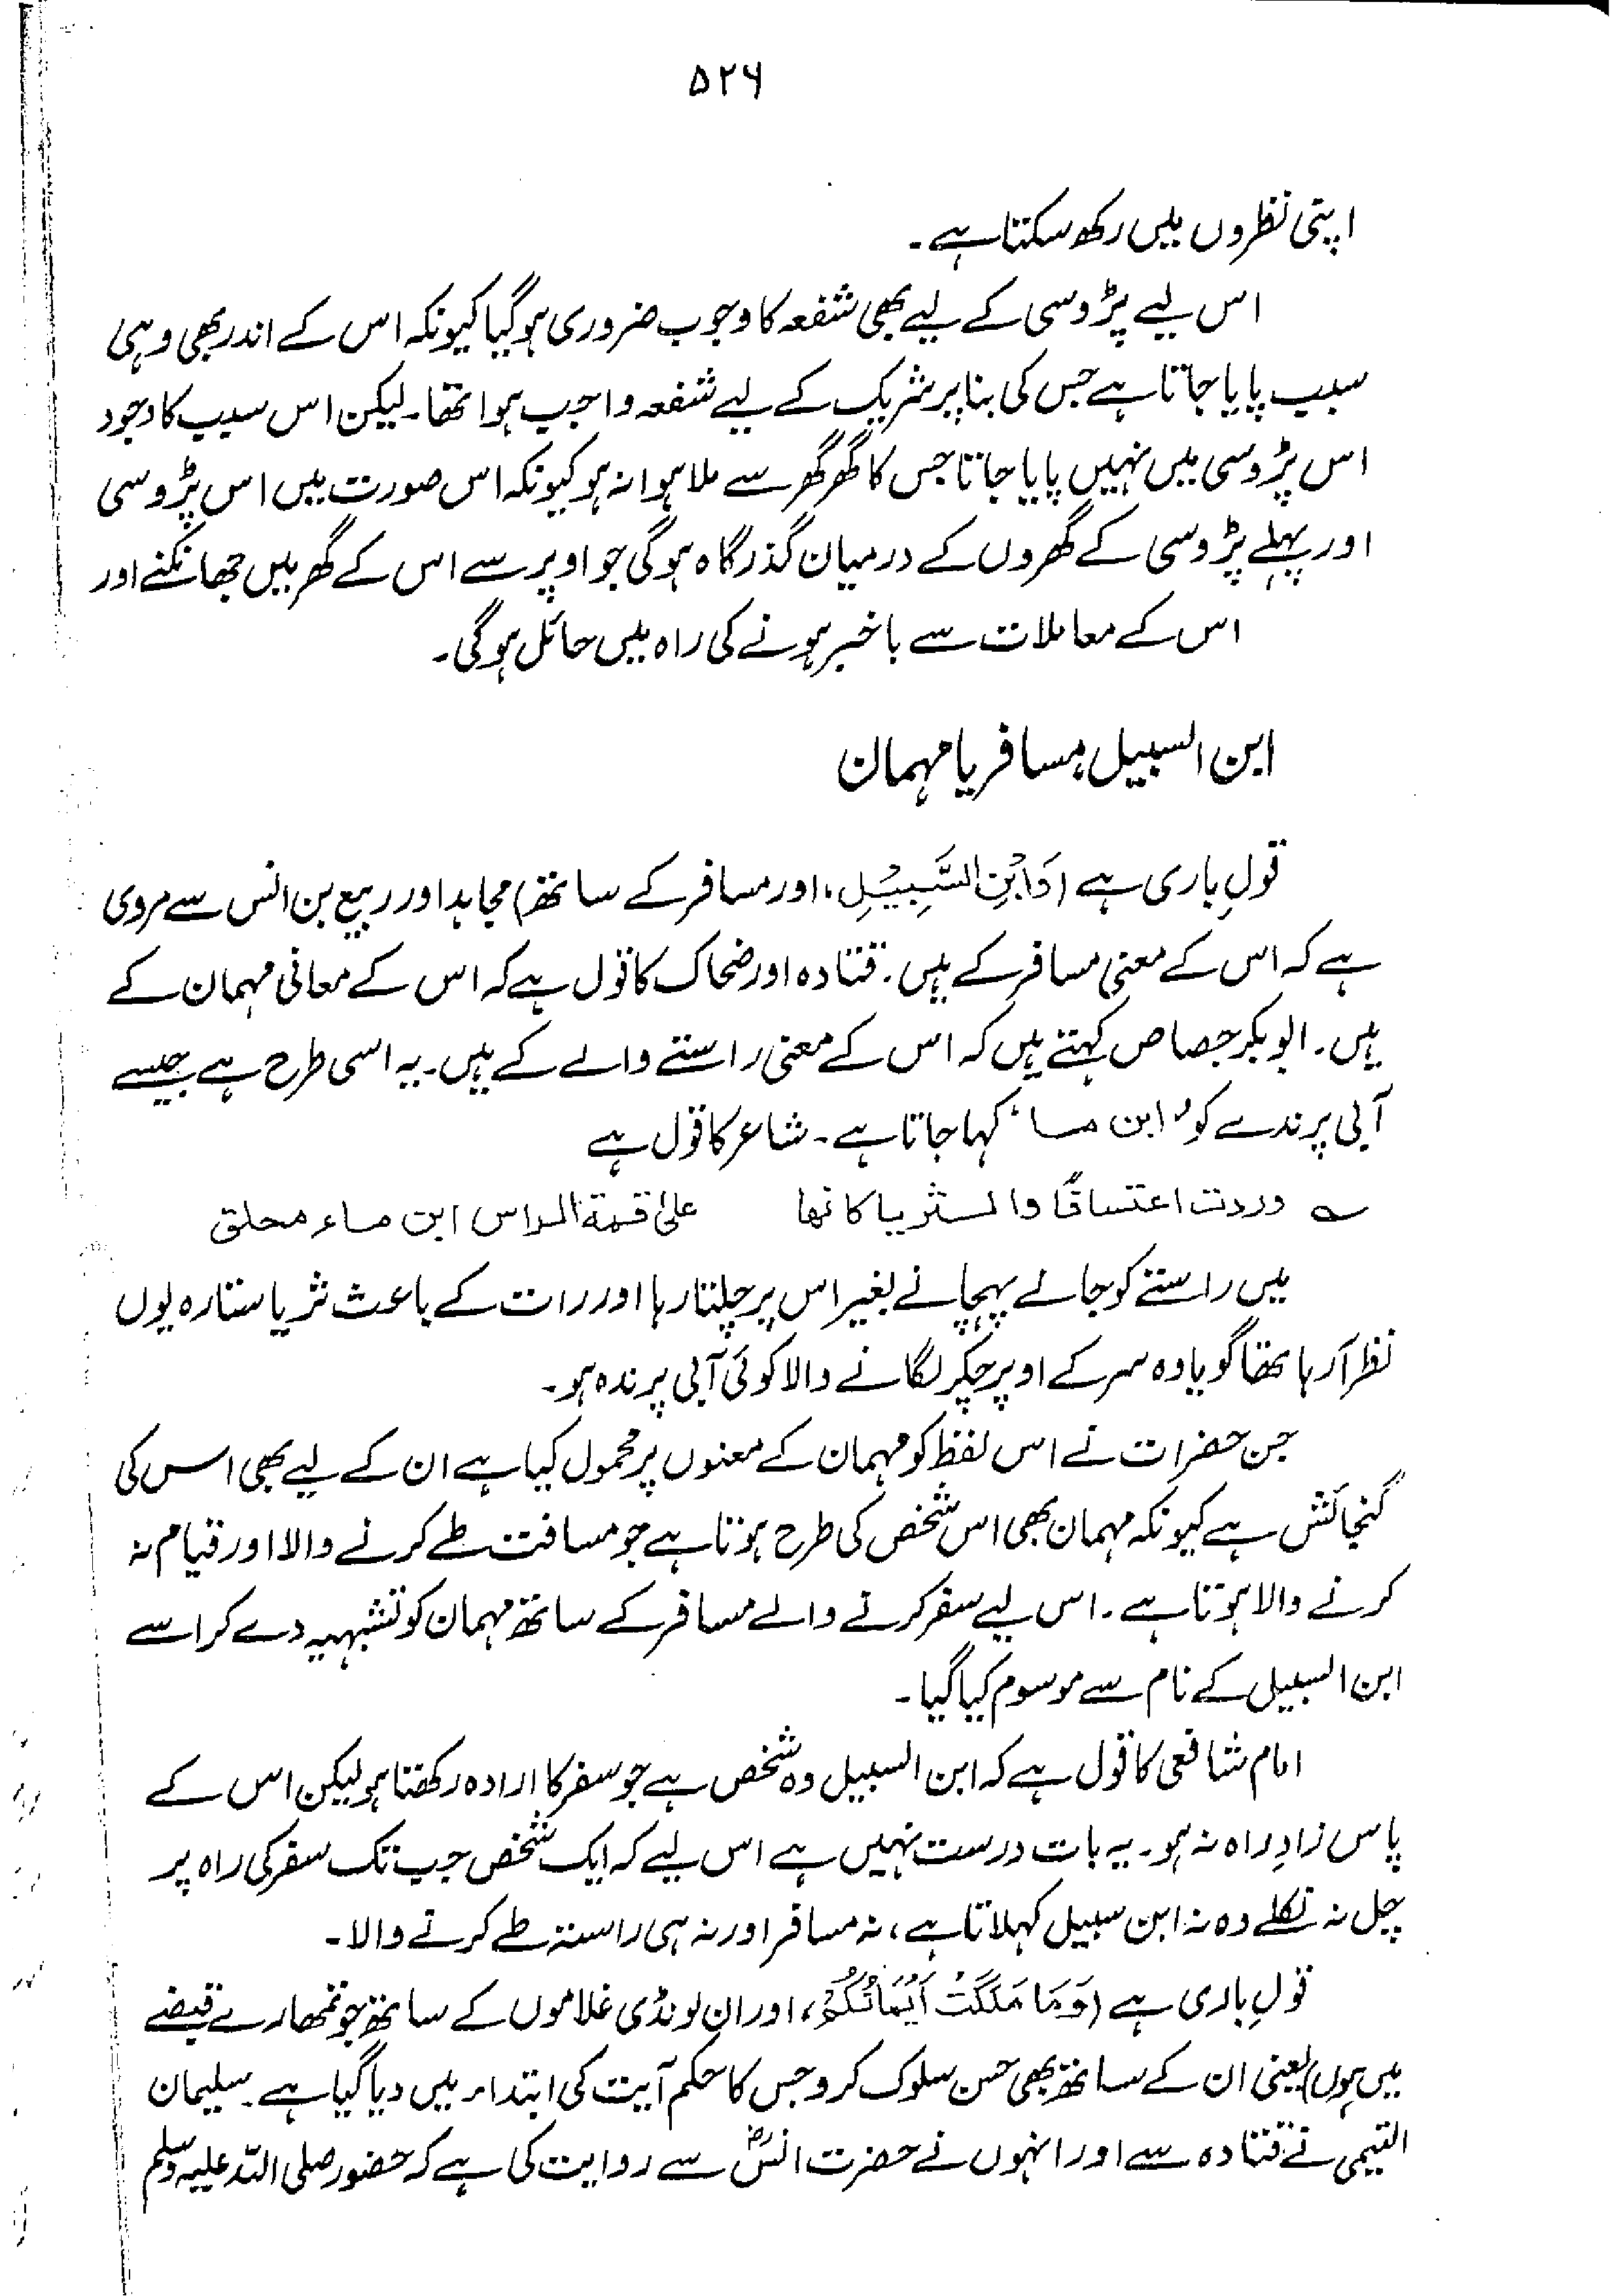 ۵۲۶
اپنی نظروں میں رکھ سکتا ہے۔
اس لیے پڑوسی کے لیے بھی شفعہ کا وجوب ضروری ہوگیا کیونکہ اس کے اندر بھی وہی
سبب پایا جاتا ہے جس کی بنا پر شریک کے لیے شفعہ واجب ہوا تھا۔ لیکن اس سبب کا وجود
اس پڑوسی میں نہیں پایا جاتا جس کا گھر گھر سے ملا ہوا نہ ہو کیونکہ اس صورت میں اس پڑوسی
اور پہلے پڑوسی کے گھروں کے درمیان گذرگاہ ہوگی جو اوپر سے اس کے گھر میں جھانکنے اور
اس کے معاملات سے باخبر ہونے کی راہ میں حائل ہوگی۔
ابن السبیل، مسافر یا مہمان
قولِ باری ہے (وَابْنِ السَّبِیْلِ، اور مسافر کے ساتھ) مجاہد اور ربیع بن انس سے مروی
ہے کہ اس کے معنی مسافر کے ہیں۔ قتادہ اور ضحاک کا قول ہے کہ اس کے معانی مہمان کے
ہیں۔ ابوبکر جصاص کہتے ہیں کہ اس کے معنی راستے والے کے ہیں۔ یہ اسی طرح ہے جیسے
آبی پرندے کو 'ابن ماء' کہا جاتا ہے۔ شاعر کا قول ہے
؎ وردت اعتسافًا والثریا کانھا علیٰ قمۃ الراس ابن ماء محلق
میں راستے کو جانے پہچانے بغیر اس پر چلتا رہا اور رات کے باعث ثریا ستارہ یوں
نظر آرہا تھا گویا وہ سر کے اوپر چکر لگانے والا کوئی آبی پرندہ ہو۔
جن حضرات نے اس لفظ کو مہمان کے معنوں پر محمول کیا ہے ان کے لیے بھی اس کی
گنجائش ہے کیونکہ مہمان بھی اس شخص کی طرح ہوتا ہے جو مسافت طے کرنے والا اور قیام نہ
کرنے والا ہوتا ہے۔ اس لیے سفر کرنے والے مسافر کے ساتھ مہمان کو تشبیہہ دے کر اسے
ابن السبیل کے نام سے موسوم کیا گیا۔
امام شافعی کا قول ہے کہ ابن السبیل وہ شخص ہے جو سفر کا ارادہ رکھتا ہو لیکن اس کے
پاس زادِ راہ نہ ہو۔ یہ بات درست نہیں ہے اس لیے کہ ایک شخص جب تک سفر کی راہ پر
چل نہ نکلے وہ نہ ابن سبیل کہلاتا ہے، نہ مسافر اور نہ ہی راستہ طے کرنے والا۔
قولِ باری ہے (وَمَا مَلَکَتْ اَیْمَانُکُمْ، اور ان لونڈی غلاموں کے ساتھ جو تمھارے قبضے
میں ہوں) یعنی ان کے ساتھ بھی حسن سلوک کرو جس کا حکم آیت کی ابتداء میں دیا گیا ہے۔ سلیمان
التیمی نے قتادہ سے اور انہوں نے حضرت انسؓ سے روایت کی ہے کہ حضور صلی اللہ علیہ وسلم